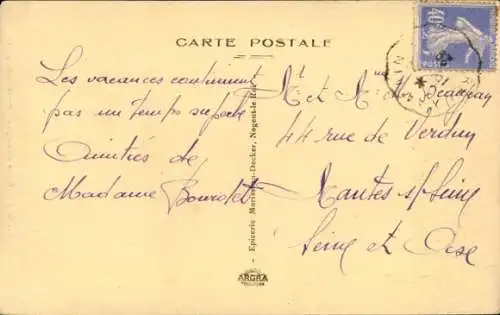 CARTE POSTALE
Les vacances continuent
par un temps superbe
Amitiés de
Madame Bourdet
Mr et Mme Jeannay
44 rue de Verdun
Mantes s/Seine
Seine et Oise
Epicerie Decker, Nogent-le-Roi
ARGRA
40c
POSTES